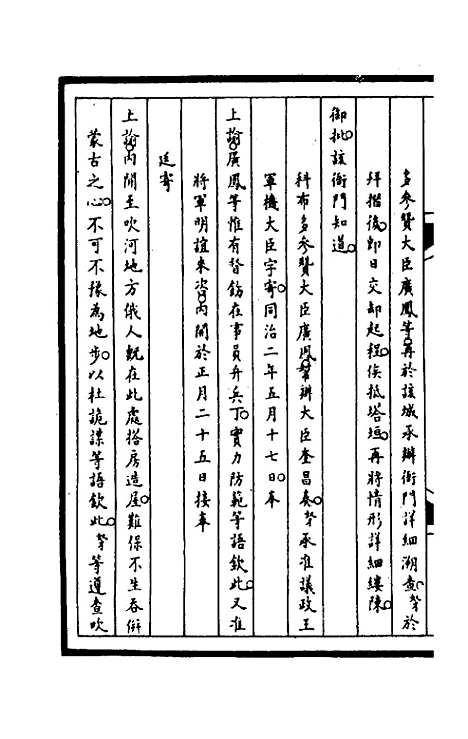 多參贊大臣廣鳳等再於該城承辦衙門詳細溯查。奴才於
拜摺後。即日交卸起程。俟抵塔垣。再將情形詳細縷陳。
御批該衙門知道。
科布多參贊大臣廣鳳幫辦大臣奎昌奏。奴才承准議政王
軍機大臣字寄。同治二年五月十七日。奉
上諭。廣鳳等惟有督飭在事員弁兵丁。實力防範等語。欽此。又准
將軍明誼來咨。內開於正月二十五日接奉
廷寄
上諭。內開至吹河地方俄人既在此處搭房造屋。難保不生吞併
蒙古之心。不可不豫為地步。以杜詭謀等語。欽此。奴才等遵查吹